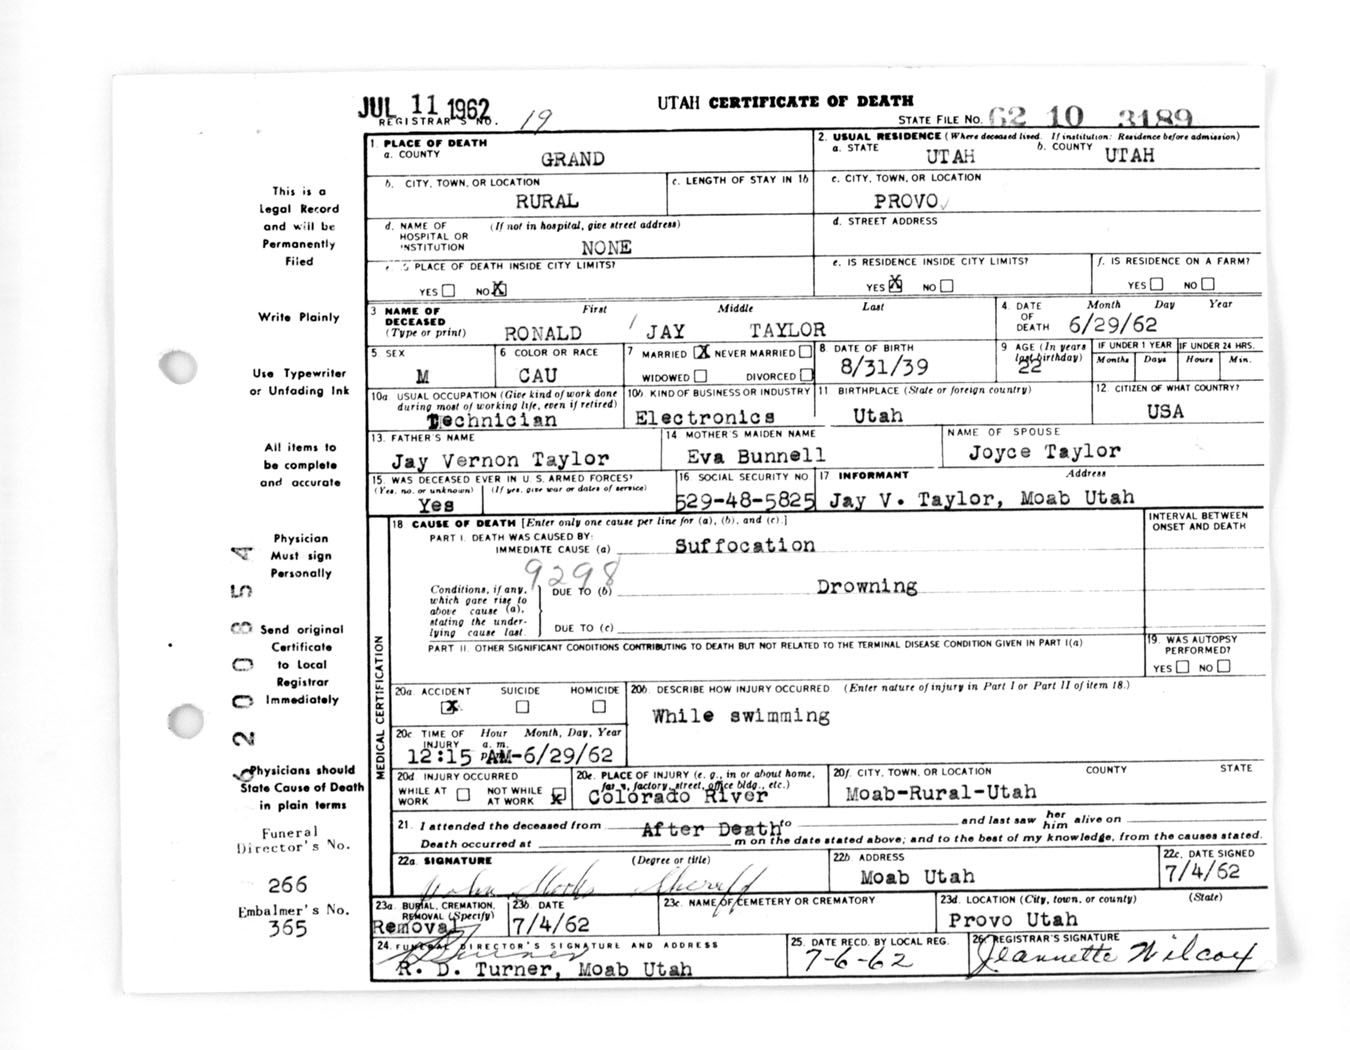 JUL 11 1962
UTAH CERTIFICATE OF DEATH
REGISTRAR'S NO. 19
STATE FILE NO. 62 10 3189
1. PLACE OF DEATH
a. COUNTY GRAND
2. USUAL RESIDENCE (Where deceased lived. If institution: Residence before admission)
a. STATE UTAH b. COUNTY UTAH
b. CITY, TOWN, OR LOCATION RURAL
c. LENGTH OF STAY IN 1b
c. CITY, TOWN, OR LOCATION
PROVO
d. NAME OF (If not in hospital, give street address)
HOSPITAL OR
INSTITUTION NONE
d. STREET ADDRESS
PLACE OF DEATH INSIDE CITY LIMITS?
YES NO X
e. IS RESIDENCE INSIDE CITY LIMITS?
YES X NO
f. IS RESIDENCE ON A FARM?
YES NO
3 NAME OF DECEASED (Type or print)
First Middle Last
RONALD JAY TAYLOR
4. DATE OF DEATH Month Day Year
6/29/62
5 SEX
M
6 COLOR OR RACE
CAU
7 MARRIED X NEVER MARRIED
WIDOWED DIVORCED
8 DATE OF BIRTH
8/31/39
9 AGE (In years last birthday)
22
IF UNDER 1 YEAR IF UNDER 24 HRS.
Months Days Hours Min.
10a. USUAL OCCUPATION (Give kind of work done
during most of working life, even if retired)
Technician
10b KIND OF BUSINESS OR INDUSTRY
Electronics
11 BIRTHPLACE (State or foreign country)
Utah
12. CITIZEN OF WHAT COUNTRY?
USA
13. FATHER'S NAME
Jay Vernon Taylor
14 MOTHER'S MAIDEN NAME
Eva Bunnell
NAME OF SPOUSE
Joyce Taylor
15. WAS DECEASED EVER IN U. S. ARMED FORCES?
(Yes, no, or unknown) (If yes, give war or dates of service)
Yes
16 SOCIAL SECURITY NO.
529-48-5825
17 INFORMANT Address
Jay V. Taylor, Moab Utah
MEDICAL CERTIFICATION
18 CAUSE OF DEATH [Enter only one cause per line for (a), (b), and (c).]
INTERVAL BETWEEN
ONSET AND DEATH
PART I. DEATH WAS CAUSED BY:
IMMEDIATE CAUSE (a) Suffocation
9298
Conditions, if any,
which gave rise to
above cause (a),
stating the under-
lying cause last.
DUE TO (b) Drowning
DUE TO (c)
PART II. OTHER SIGNIFICANT CONDITIONS CONTRIBUTING TO DEATH BUT NOT RELATED TO THE TERMINAL DISEASE CONDITION GIVEN IN PART I(a)
19. WAS AUTOPSY
PERFORMED?
YES NO
20a. ACCIDENT SUICIDE HOMICIDE
X
20b. DESCRIBE HOW INJURY OCCURRED. (Enter nature of injury in Part I or Part II of item 18.)
While swimming
20c TIME OF INJURY Hour Month, Day, Year
a. m.
p.
12:15 AM-6/29/62
20d INJURY OCCURRED
WHILE AT WORK NOT WHILE AT WORK X
20e. PLACE OF INJURY (e. g., in or about home,
farm, factory, street, office bldg., etc.)
Colorado River
20f. CITY, TOWN, OR LOCATION COUNTY STATE
Moab-Rural-Utah
21. I attended the deceased from After Death to and last saw her him alive on
Death occurred at m on the date stated above; and to the best of my knowledge, from the causes stated.
22a. SIGNATURE (Degree or title)
John Stocks Sheriff
22b ADDRESS
Moab Utah
22c. DATE SIGNED
7/4/62
23a. BURIAL, CREMATION,
REMOVAL (Specify)
Removal
23b DATE
7/4/62
23c. NAME OF CEMETERY OR CREMATORY
23d. LOCATION (City, town, or county) (State)
Provo Utah
24. FUNERAL DIRECTOR'S SIGNATURE AND ADDRESS
R. D. Turner, Moab Utah
25. DATE RECD. BY LOCAL REG.
7-6-62
26. REGISTRAR'S SIGNATURE
Jeannette Wilcox
This is a
Legal Record
and will be
Permanently
Filed
Write Plainly
Use Typewriter
or Unfading Ink
All items to
be complete
and accurate
Physician
Must sign
Personally
Send original
Certificate
to Local
Registrar
Immediately
Physicians should
State Cause of Death
in plain terms
Funeral
Director's No.
266
Embalmer's No.
365